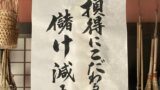 損得にこだわる
儲け減る